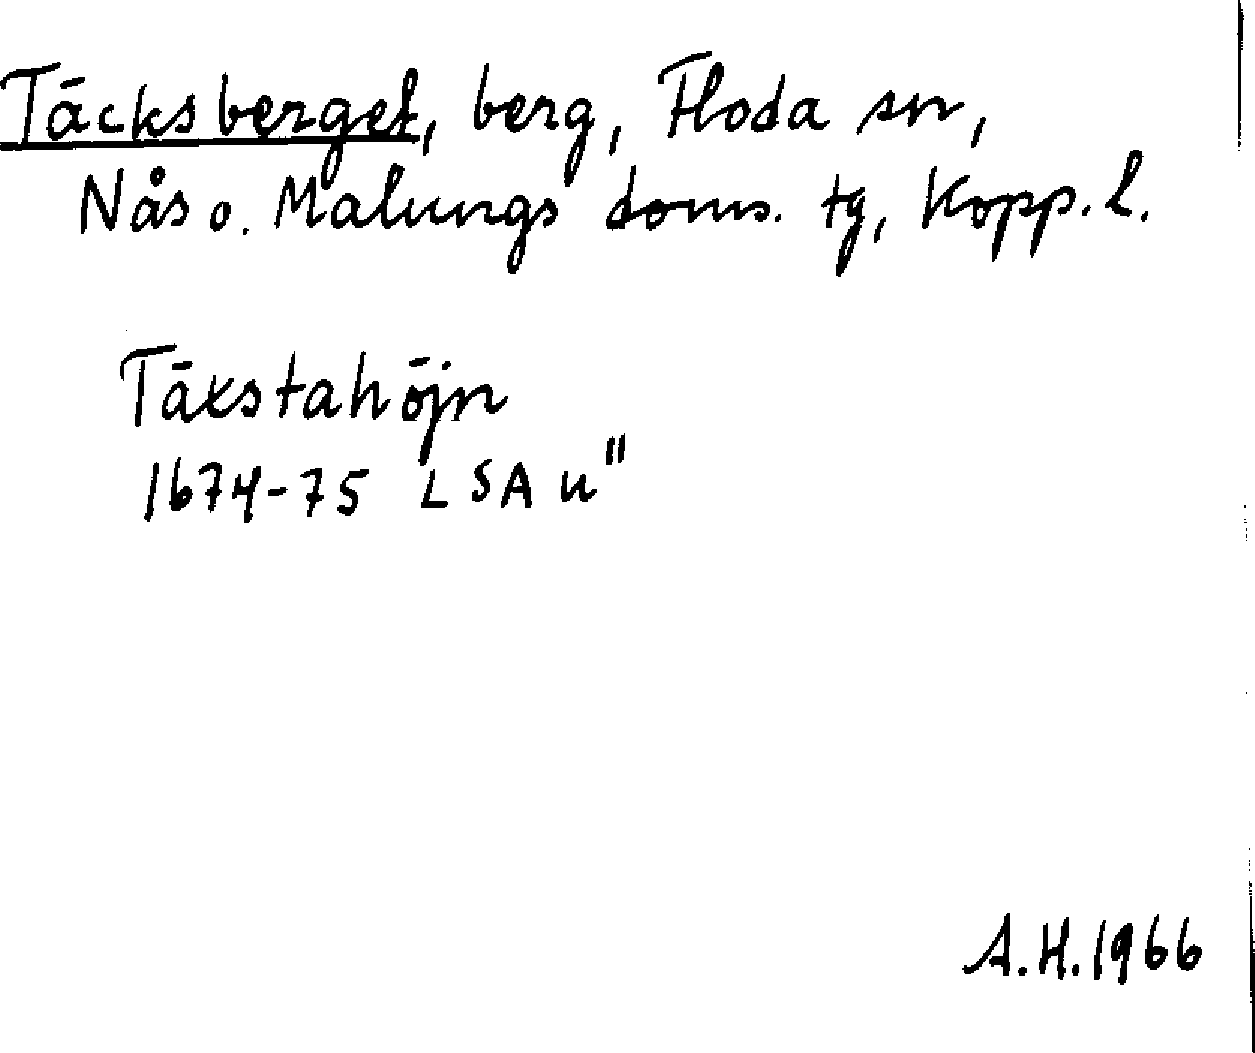 Täcksberget, berg, Floda sn,
Nås o. Malungs doms. tg, Kopp. l.
Täxstahöjn
1674-75 LSA u"
A.H. 1966